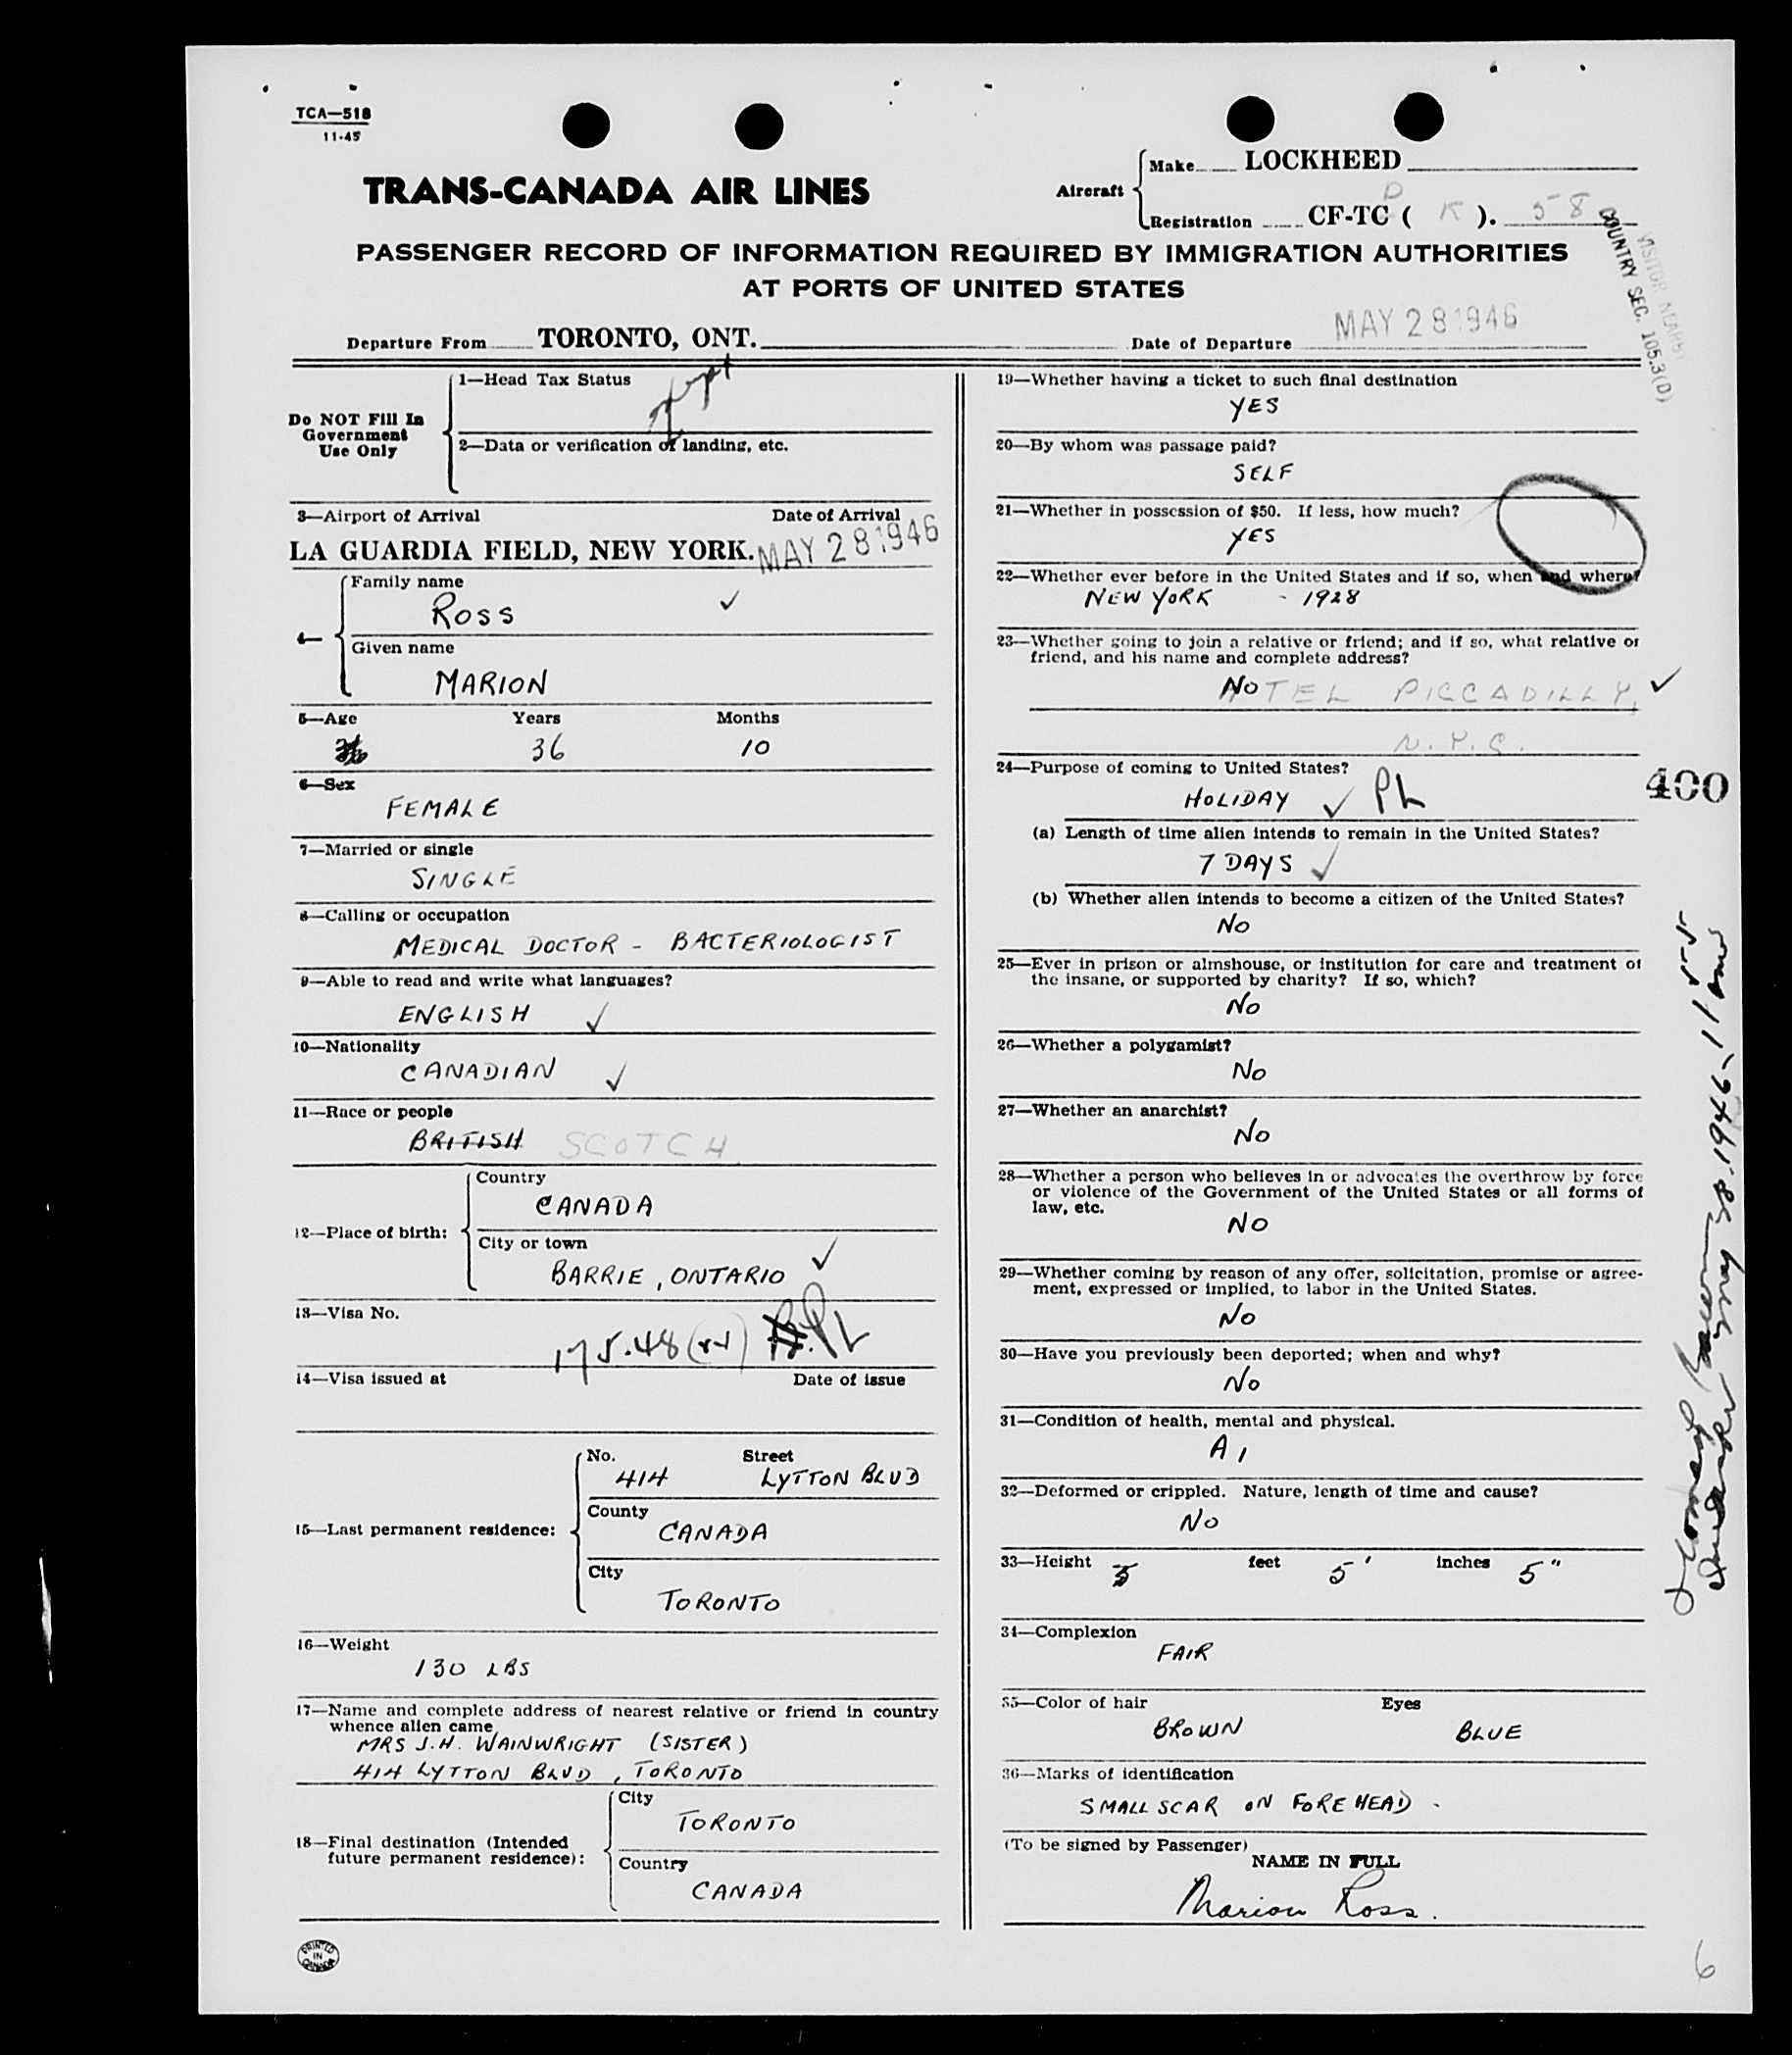 TCA—518
11-45
TRANS-CANADA AIR LINES
Aircraft
Make LOCKHEED
Registration CF-TC ( K ). 58
D
VISITOR NEARBY
COUNTRY SEC. 105.3(D)
PASSENGER RECORD OF INFORMATION REQUIRED BY IMMIGRATION AUTHORITIES
AT PORTS OF UNITED STATES
Departure From TORONTO, ONT. Date of Departure MAY 28 1946
Do NOT Fill In
Government
Use Only
1—Head Tax Status
2—Data or verification of landing, etc.
3—Airport of Arrival Date of Arrival
LA GUARDIA FIELD, NEW YORK. MAY 28 1946
4—
Family name
ROSS ✓
Given name
MARION
5—Age Years Months
36 10
6—Sex
FEMALE
7—Married or single
SINGLE
8—Calling or occupation
MEDICAL DOCTOR - BACTERIOLOGIST
9—Able to read and write what languages?
ENGLISH ✓
10—Nationality
CANADIAN ✓
11—Race or people
BRITISH SCOTCH
12—Place of birth:
Country
CANADA
City or town
BARRIE, ONTARIO ✓
13—Visa No.
175.48
14—Visa issued at Date of issue
15—Last permanent residence:
No. Street
414 LYTTON BLVD
County
CANADA
City
TORONTO
16—Weight
130 LBS
17—Name and complete address of nearest relative or friend in country
whence alien came
MRS J.H. WAINWRIGHT (SISTER)
414 LYTTON BLVD, TORONTO
18—Final destination (Intended
future permanent residence):
City
TORONTO
Country
CANADA
PRINTED
IN
CANADA
19—Whether having a ticket to such final destination
YES
20—By whom was passage paid?
SELF
21—Whether in possession of $50. If less, how much?
YES
22—Whether ever before in the United States and if so, when and where?
NEW YORK - 1928
23—Whether going to join a relative or friend; and if so, what relative or
friend, and his name and complete address?
NO HOTEL PICCADILLY, ✓
N.Y.C.
24—Purpose of coming to United States?
HOLIDAY ✓ PL
400
(a) Length of time alien intends to remain in the United States?
7 DAYS ✓
(b) Whether alien intends to become a citizen of the United States?
NO
25—Ever in prison or almshouse, or institution for care and treatment of
the insane, or supported by charity? If so, which?
NO
26—Whether a polygamist?
NO
27—Whether an anarchist?
NO
28—Whether a person who believes in or advocates the overthrow by force
or violence of the Government of the United States or all forms of
law, etc.
NO
29—Whether coming by reason of any offer, solicitation, promise or agree-
ment, expressed or implied, to labor in the United States.
NO
30—Have you previously been deported; when and why?
NO
31—Condition of health, mental and physical.
A1
32—Deformed or crippled. Nature, length of time and cause?
NO
33—Height feet 5' inches 5"
34—Complexion
FAIR
35—Color of hair Eyes
BROWN BLUE
36—Marks of identification
SMALL SCAR ON FOREHEAD.
(To be signed by Passenger)
NAME IN FULL
Marion Ross.
May 28, 1946
6